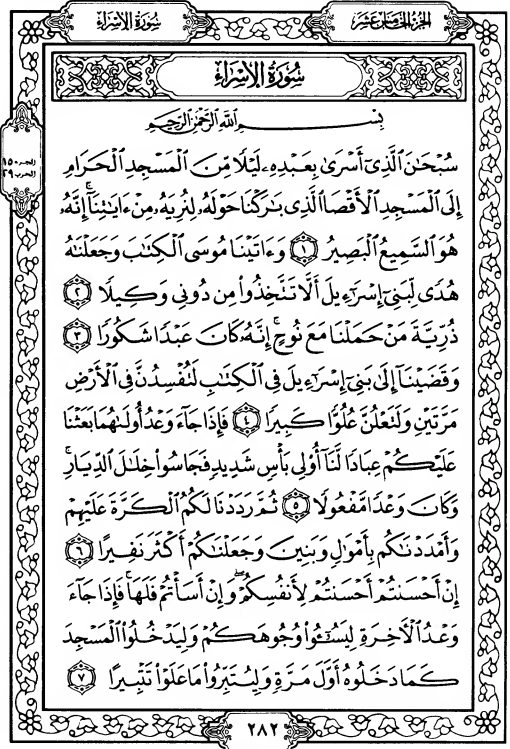 الجزء الخامس عشر
سورة الإسراء
سورة الإسراء
بسم الله الرحمن الرحيم
الجزء ١٥
الحزب ٢٩
سُبْحَٰنَ ٱلَّذِىٓ أَسْرَىٰ بِعَبْدِهِۦ لَيْلًا مِّنَ ٱلْمَسْجِدِ ٱلْحَرَامِ
إِلَى ٱلْمَسْجِدِ ٱلْأَقْصَا ٱلَّذِى بَٰرَكْنَا حَوْلَهُۥ لِنُرِيَهُۥ مِنْ ءَايَٰتِنَآ ۚ إِنَّهُۥ
هُوَ ٱلسَّمِيعُ ٱلْبَصِيرُ ١ وَءَاتَيْنَا مُوسَى ٱلْكِتَٰبَ وَجَعَلْنَٰهُ
هُدًى لِّبَنِىٓ إِسْرَٰٓءِيلَ أَلَّا تَتَّخِذُوا۟ مِن دُونِى وَكِيلًا ٢
ذُرِّيَّةَ مَنْ حَمَلْنَا مَعَ نُوحٍ ۚ إِنَّهُۥ كَانَ عَبْدًا شَكُورًا ٣
وَقَضَيْنَآ إِلَىٰ بَنِىٓ إِسْرَٰٓءِيلَ فِى ٱلْكِتَٰبِ لَتُفْسِدُنَّ فِى ٱلْأَرْضِ
مَرَّتَيْنِ وَلَتَعْلُنَّ عُلُوًّا كَبِيرًا ٤ فَإِذَا جَآءَ وَعْدُ أُولَىٰهُمَا بَعَثْنَا
عَلَيْكُمْ عِبَادًا لَّنَآ أُو۟لِى بَأْسٍ شَدِيدٍ فَجَاسُوا۟ خِلَٰلَ ٱلدِّيَارِ ۚ
وَكَانَ وَعْدًا مَّفْعُولًا ٥ ثُمَّ رَدَدْنَا لَكُمُ ٱلْكَرَّةَ عَلَيْهِمْ
وَأَمْدَدْنَٰكُم بِأَمْوَٰلٍ وَبَنِينَ وَجَعَلْنَٰكُمْ أَكْثَرَ نَفِيرًا ٦
إِنْ أَحْسَنتُمْ أَحْسَنتُمْ لِأَنفُسِكُمْ ۖ وَإِنْ أَسَأْتُمْ فَلَهَا ۚ فَإِذَا جَآءَ
وَعْدُ ٱلْءَاخِرَةِ لِيَسُـۥٓـُٔوا۟ وُجُوهَكُمْ وَلِيَدْخُلُوا۟ ٱلْمَسْجِدَ
كَمَا دَخَلُوهُ أَوَّلَ مَرَّةٍ وَلِيُتَبِّرُوا۟ مَا عَلَوْا۟ تَتْبِيرًا ٧
٢٨٢